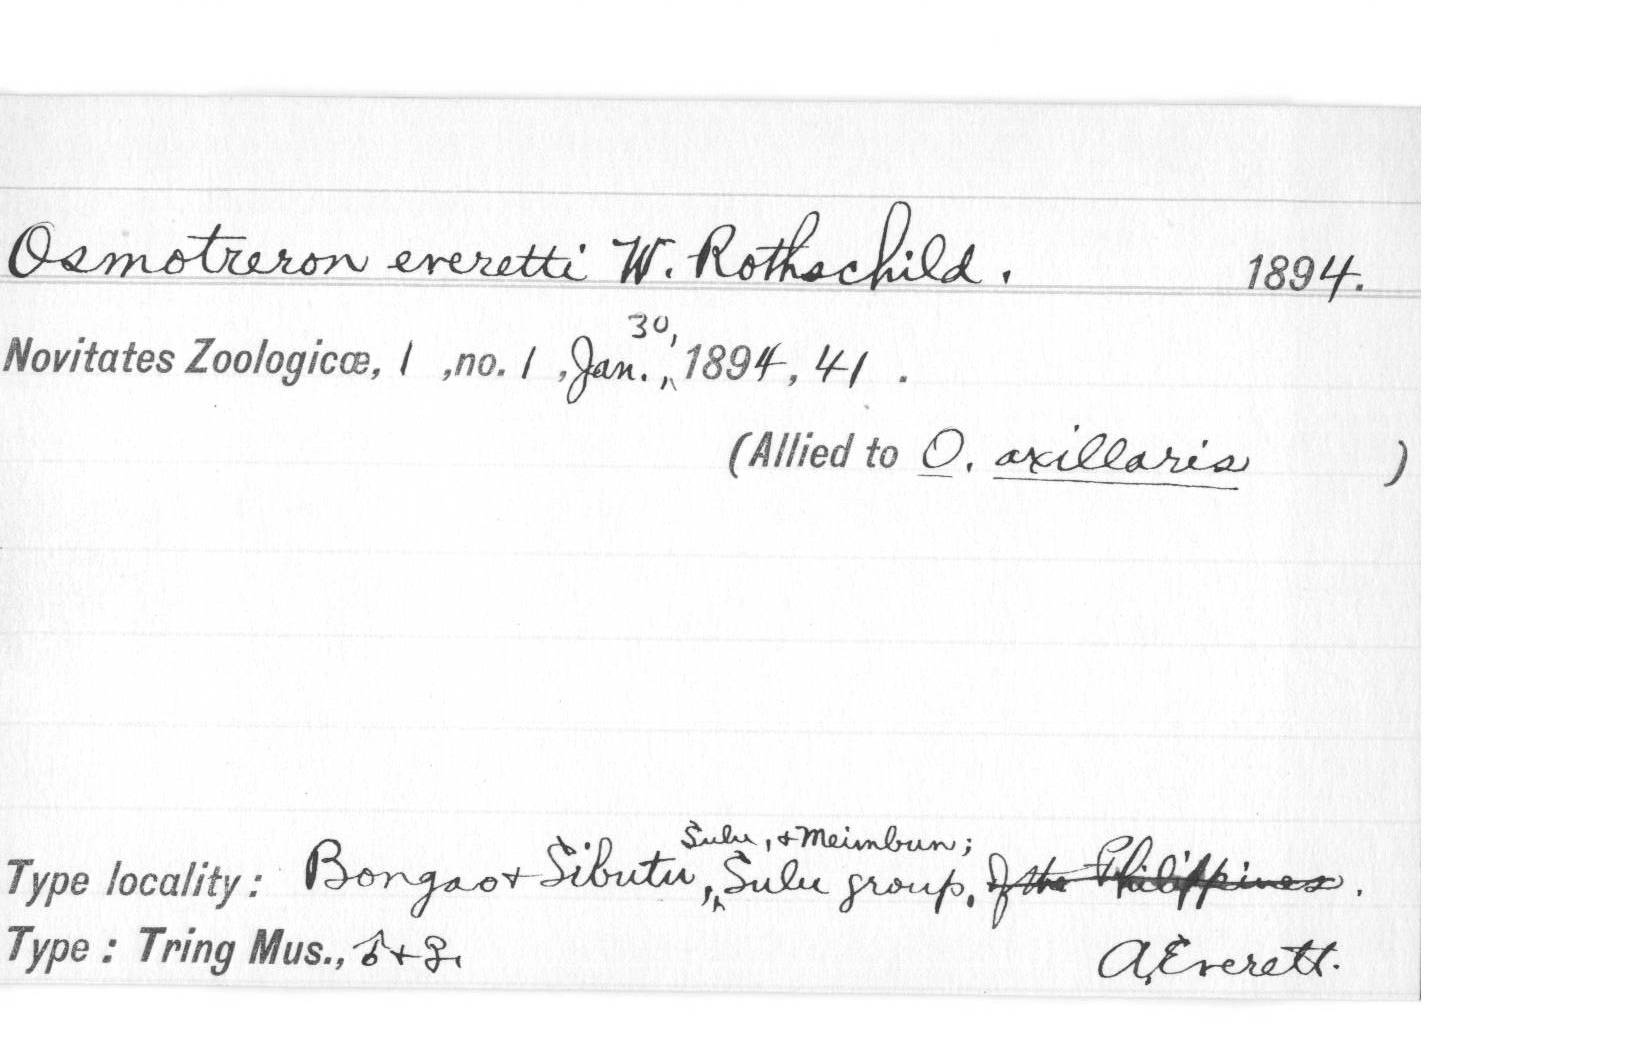 Osmotreron everetti W. Rothschild. 1894.
Novitates Zoologicæ, 1 ,no. 1 ,Jan. 30, 1894, 41 .
(Allied to O. axillaris )
Type locality: Bongao + Sibutu, Sulu, + Meimbun; Sulu group, of the Philippines.
Type: Tring Mus., ♂ + ♀. A. Everett.